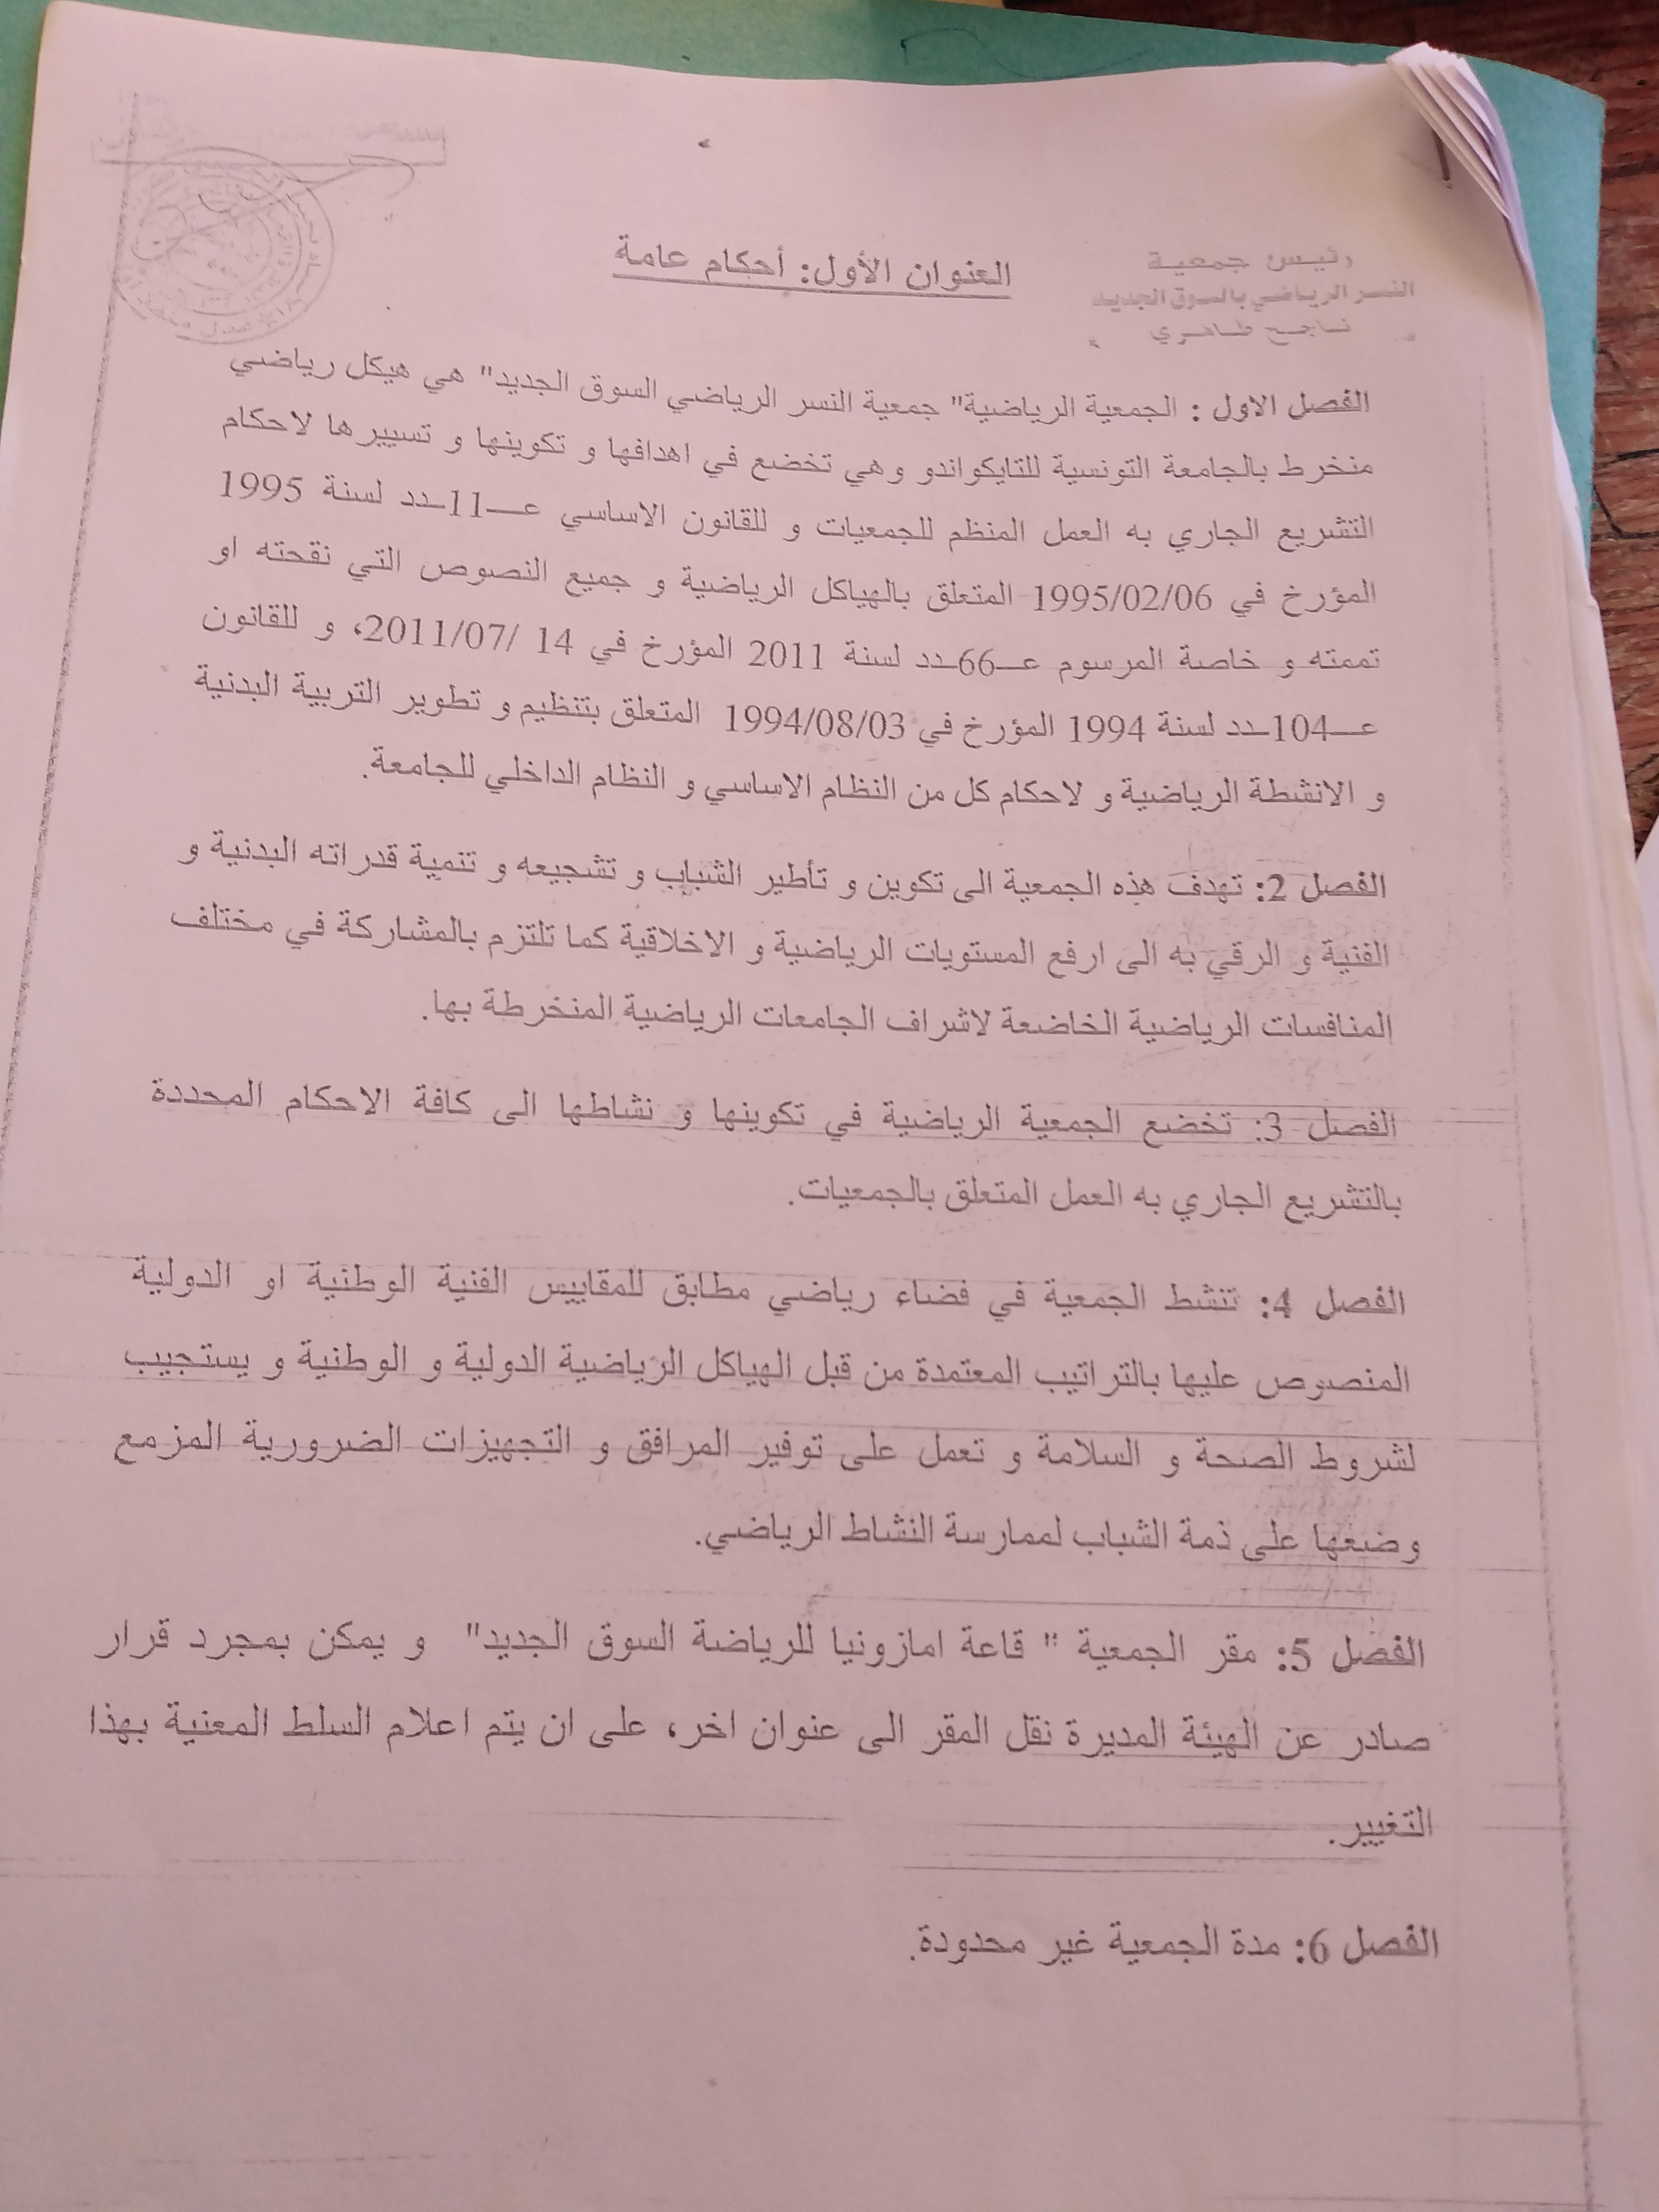 رئيس جمعية
النسر الرياضي بالسوق الجديد
ناجح طاهري
العنوان الأول: أحكام عامة
الفصل الاول : الجمعية الرياضية" جمعية النسر الرياضي السوق الجديد" هي هيكل رياضي
منخرط بالجامعة التونسية للتايكواندو وهي تخضع في اهدافها و تكوينها و تسييرها لاحكام
التشريع الجاري به العمل المنظم للجمعيات و للقانون الاساسي عـــ11ــدد لسنة 1995
المؤرخ في 1995/02/06 المتعلق بالهياكل الرياضية و جميع النصوص التي نقحته او
تممته و خاصة المرسوم عـــ66ــدد لسنة 2011 المؤرخ في 14 /2011/07، و للقانون
عـــ104ــدد لسنة 1994 المؤرخ في 1994/08/03 المتعلق بتنظيم و تطوير التربية البدنية
و الانشطة الرياضية و لاحكام كل من النظام الاساسي و النظام الداخلي للجامعة.
الفصل 2: تهدف هذه الجمعية الى تكوين و تأطير الشباب و تشجيعه و تنمية قدراته البدنية و
الفنية و الرقي به الى ارفع المستويات الرياضية و الاخلاقية كما تلتزم بالمشاركة في مختلف
المنافسات الرياضية الخاضعة لاشراف الجامعات الرياضية المنخرطة بها.
الفصل 3: تخضع الجمعية الرياضية في تكوينها و نشاطها الى كافة الاحكام المحددة
بالتشريع الجاري به العمل المتعلق بالجمعيات.
الفصل 4: تنشط الجمعية في فضاء رياضي مطابق للمقاييس الفنية الوطنية او الدولية
المنصوص عليها بالتراتيب المعتمدة من قبل الهياكل الرياضية الدولية و الوطنية و يستجيب
لشروط الصحة و السلامة و تعمل على توفير المرافق و التجهيزات الضرورية المزمع
وضعها على ذمة الشباب لممارسة النشاط الرياضي.
الفصل 5: مقر الجمعية " قاعة امازونيا للرياضة السوق الجديد" و يمكن بمجرد قرار
صادر عن الهيئة المديرة نقل المقر الى عنوان اخر، على ان يتم اعلام السلط المعنية بهذا
التغيير.
الفصل 6: مدة الجمعية غير محدودة.